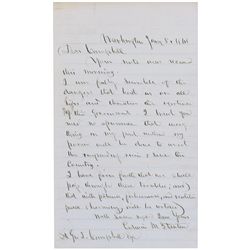 Washington Jany 8. 1861
Dear Campbell
Your note was recd
this morning.
I am fully sensible of the
dangers that beset us on all
sides and threaten the existence
of the Government. I trust you
need no assurance that every
thing in my part within my
power will be done to avert
the impending ruin, & save the
Country.
I have firm faith that we shall
pass through these troubles, and
that with patience, forbearance, and
will be
With
Edwin M Stanton
Campbell Esq